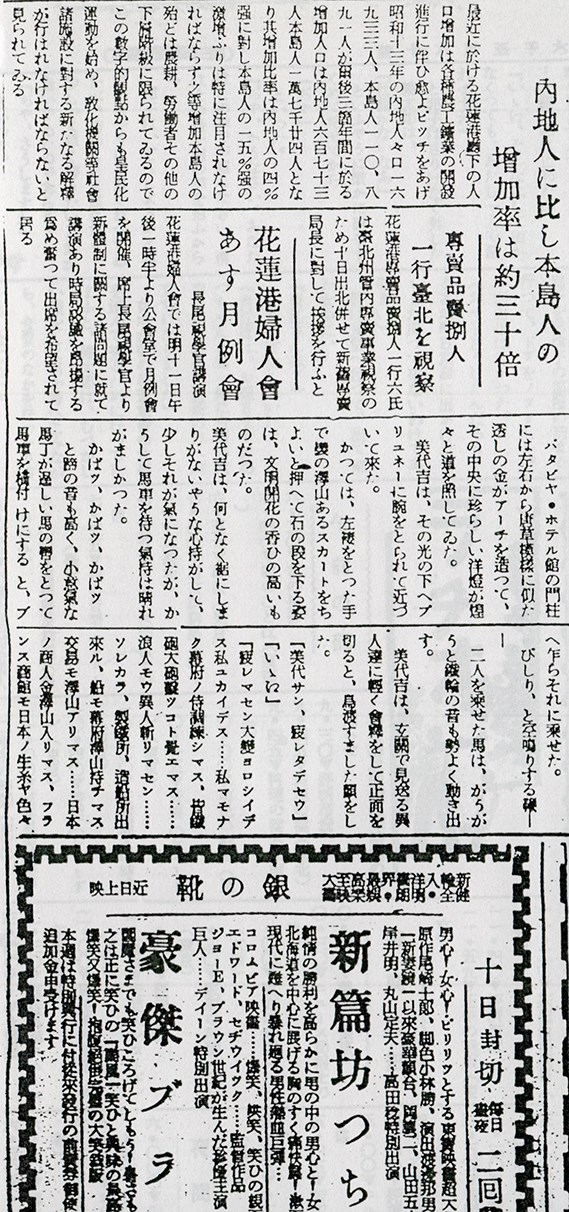 內地人に比し本島人の
增加率は約三十倍
最近に於ける花蓮港廳下の人
口增加は各種農工鑛業の開發
進行に伴ひ愈よピッチをあげ
昭和十三年の內地人々口一六
九三三人、本島人一一〇、八
九一人が爾後三箇年間に於る
增加人口は內地人六百七十三
人本島人一萬七千廿四人とな
り其增加比率は內地人の四%
強に對し本島人の一五%強の
激增ぶりは特に注目されなけ
ればならず之等增加本島人の
殆どは農耕、勞働者その他の
下層階級に限られてゐるので
この數字的觀點からも皇民化
運動を始め、敎化機關等社會
諸施設に對する新たなる解釋
が行はれなければならないと
見られてゐる
專賣品賣捌人
一行臺北を視察
花蓮港專賣品賣捌人一行六氏
は臺北州管內專賣事業視察の
ため十日出北併せて新舊專賣
局長に對して挨拶を行ふと
花蓮港婦人會
あす月例會
長尾視學官講演
花蓮港婦人會では明十一日午
後一時半より公會堂で月例會
を開催、席上長尾視學官より
新體制に關する諸問題に就て
講演あり時局認識を昂揚する
爲め奮つて出席を希望されて
居る
バタビヤ・ホテル館の門柱
には左右から唐草模樣に似た
透しの金がアーチを造つて、
その中央に珍らしい洋燈が煌
々と道を照してゐた。
美代吉は、その光の下へブ
リュネーに腕をとられて近づ
いて來た。
かつては、左褄をとつた手
で襞の澤山あるスカートをち
よいと押へて石の段を下る姿
は、文明開花の香ひの高いも
のだつた。
美代吉は、何となく裾にしま
りがないやうな心持がして、
少しそれが氣になつたが、か
うして馬車を待つ氣持は晴れ
がましかつた。
かぱッ、かぱッ、かぱッ
と蹄の音も高く、小意氣な
馬丁が逞しい馬の轡をとつて
馬車を橫付けにすると、ブ
へ乍らそれに乘せた。
びしり、と空鳴りする鞭―
―
二人を乘せた馬は、がうが
うと鐵輪の音も勢よく動き出
す。
美代吉は、玄關で見送る異
人達に輕く會釋をして正面を
切ると、烏渡すました顏をし
た。
「美代サン、疲レタデセウ」
「いゝえ」
「疲レマセン大變ヨロシイデ
ス私ユカイデス……私マモナ
ク幕府ノ侍調練シマス、皆鐵
砲大砲擊ツコト覺エマス……
浪人モウ異人斬リマセン……
ソレカラ、製鐵所、造船所出
來ル、船モ幕府澤山持チマス
交易モ澤山アリマス……日本
ノ商人金澤山入リマス、フラ
ンス商館モ日本ノ生糸ヤ色々
近日上映
銀の靴
十日封切
每日
晝夜
二回
男心！女心！ピリリッとする東寶映畫超大
原作尾崎士郎、脚色小林勝、演出渡邊邦男
新篇坊つち
純情の勝利を高らかに男の中の男心と！女
北海道を中心に展げる胸のすく痛快篇！漱
現代に甦へり暴れ廻る男性熱血巨彈…
コロムビア映畫……爆笑、哄笑、笑ひの親
エドワード、セヂウイック……監督作品
ジョーE、ブラウン世紀が生んだ珍優主演
巨人……デイーン特別出演
豪傑ブラ
閻魔さまでも笑ひころげてしもう！暑さも
追加金申受けます